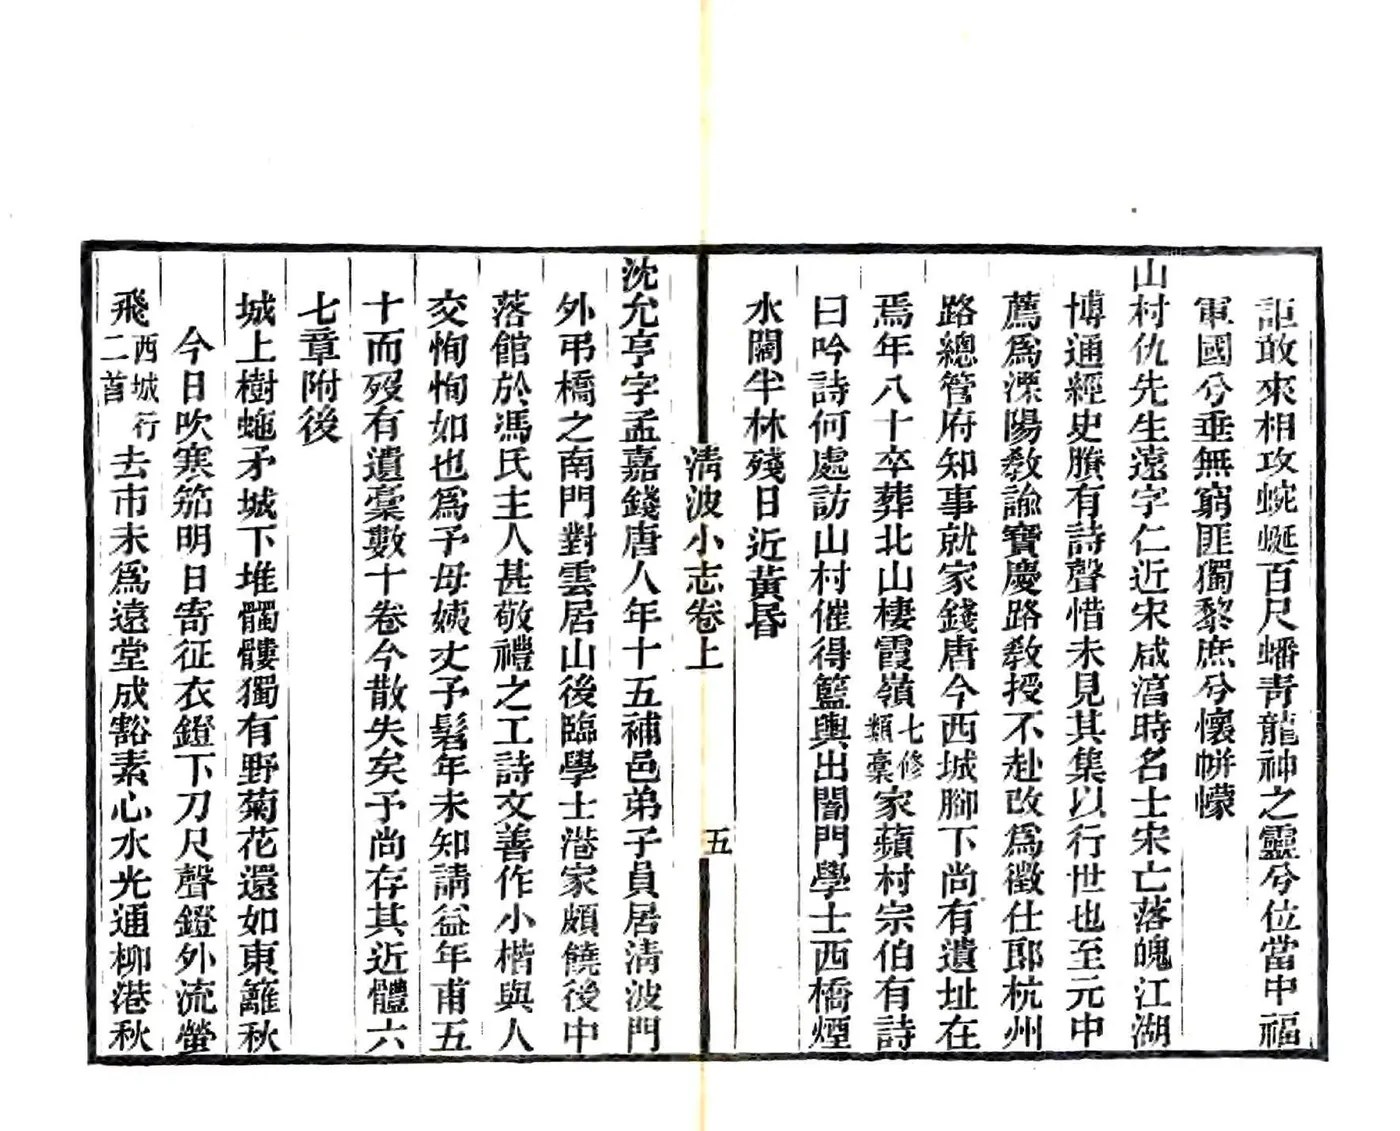 詎敢來相攻蜿蜒百尺蟠青龍神之靈兮位當中福
軍國兮垂無窮匪獨黎庶兮懷帡幪
山村仇先生遠字仁近宋咸淳時名士宋亡落魄江湖
博通經史賸有詩聲惜未見其集以行世也至元中
薦爲溧陽敎諭寶慶路敎授不赴改爲徵仕郎杭州
路總管府知事就家錢唐今西城腳下尚有遺址在
焉年八十卒葬北山棲霞嶺七修類稾家蘋村宗伯有詩
曰吟詩何處訪山村催得籃輿出闉門學士西橋煙
水闊半林殘日近黃昏
清波小志卷上
五
沈允亨字孟嘉錢唐人年十五補邑弟子員居清波門
外弔橋之南門對雲居山後臨學士港家頗饒後中
落館於馮氏主人甚敬禮之工詩文善作小楷與人
交恂恂如也爲予母姨丈予髫年未知請益年甫五
十而歿有遺稾數十卷今散失矣予尚存其近體六
七章附後
城上樹蛇矛城下堆髑髏獨有野菊花還如東籬秋
今日吹寒笳明日寄征衣鐙下刀尺聲鐙外流螢
飛西城行二首去市未爲遠堂成豁素心水光通柳港秋